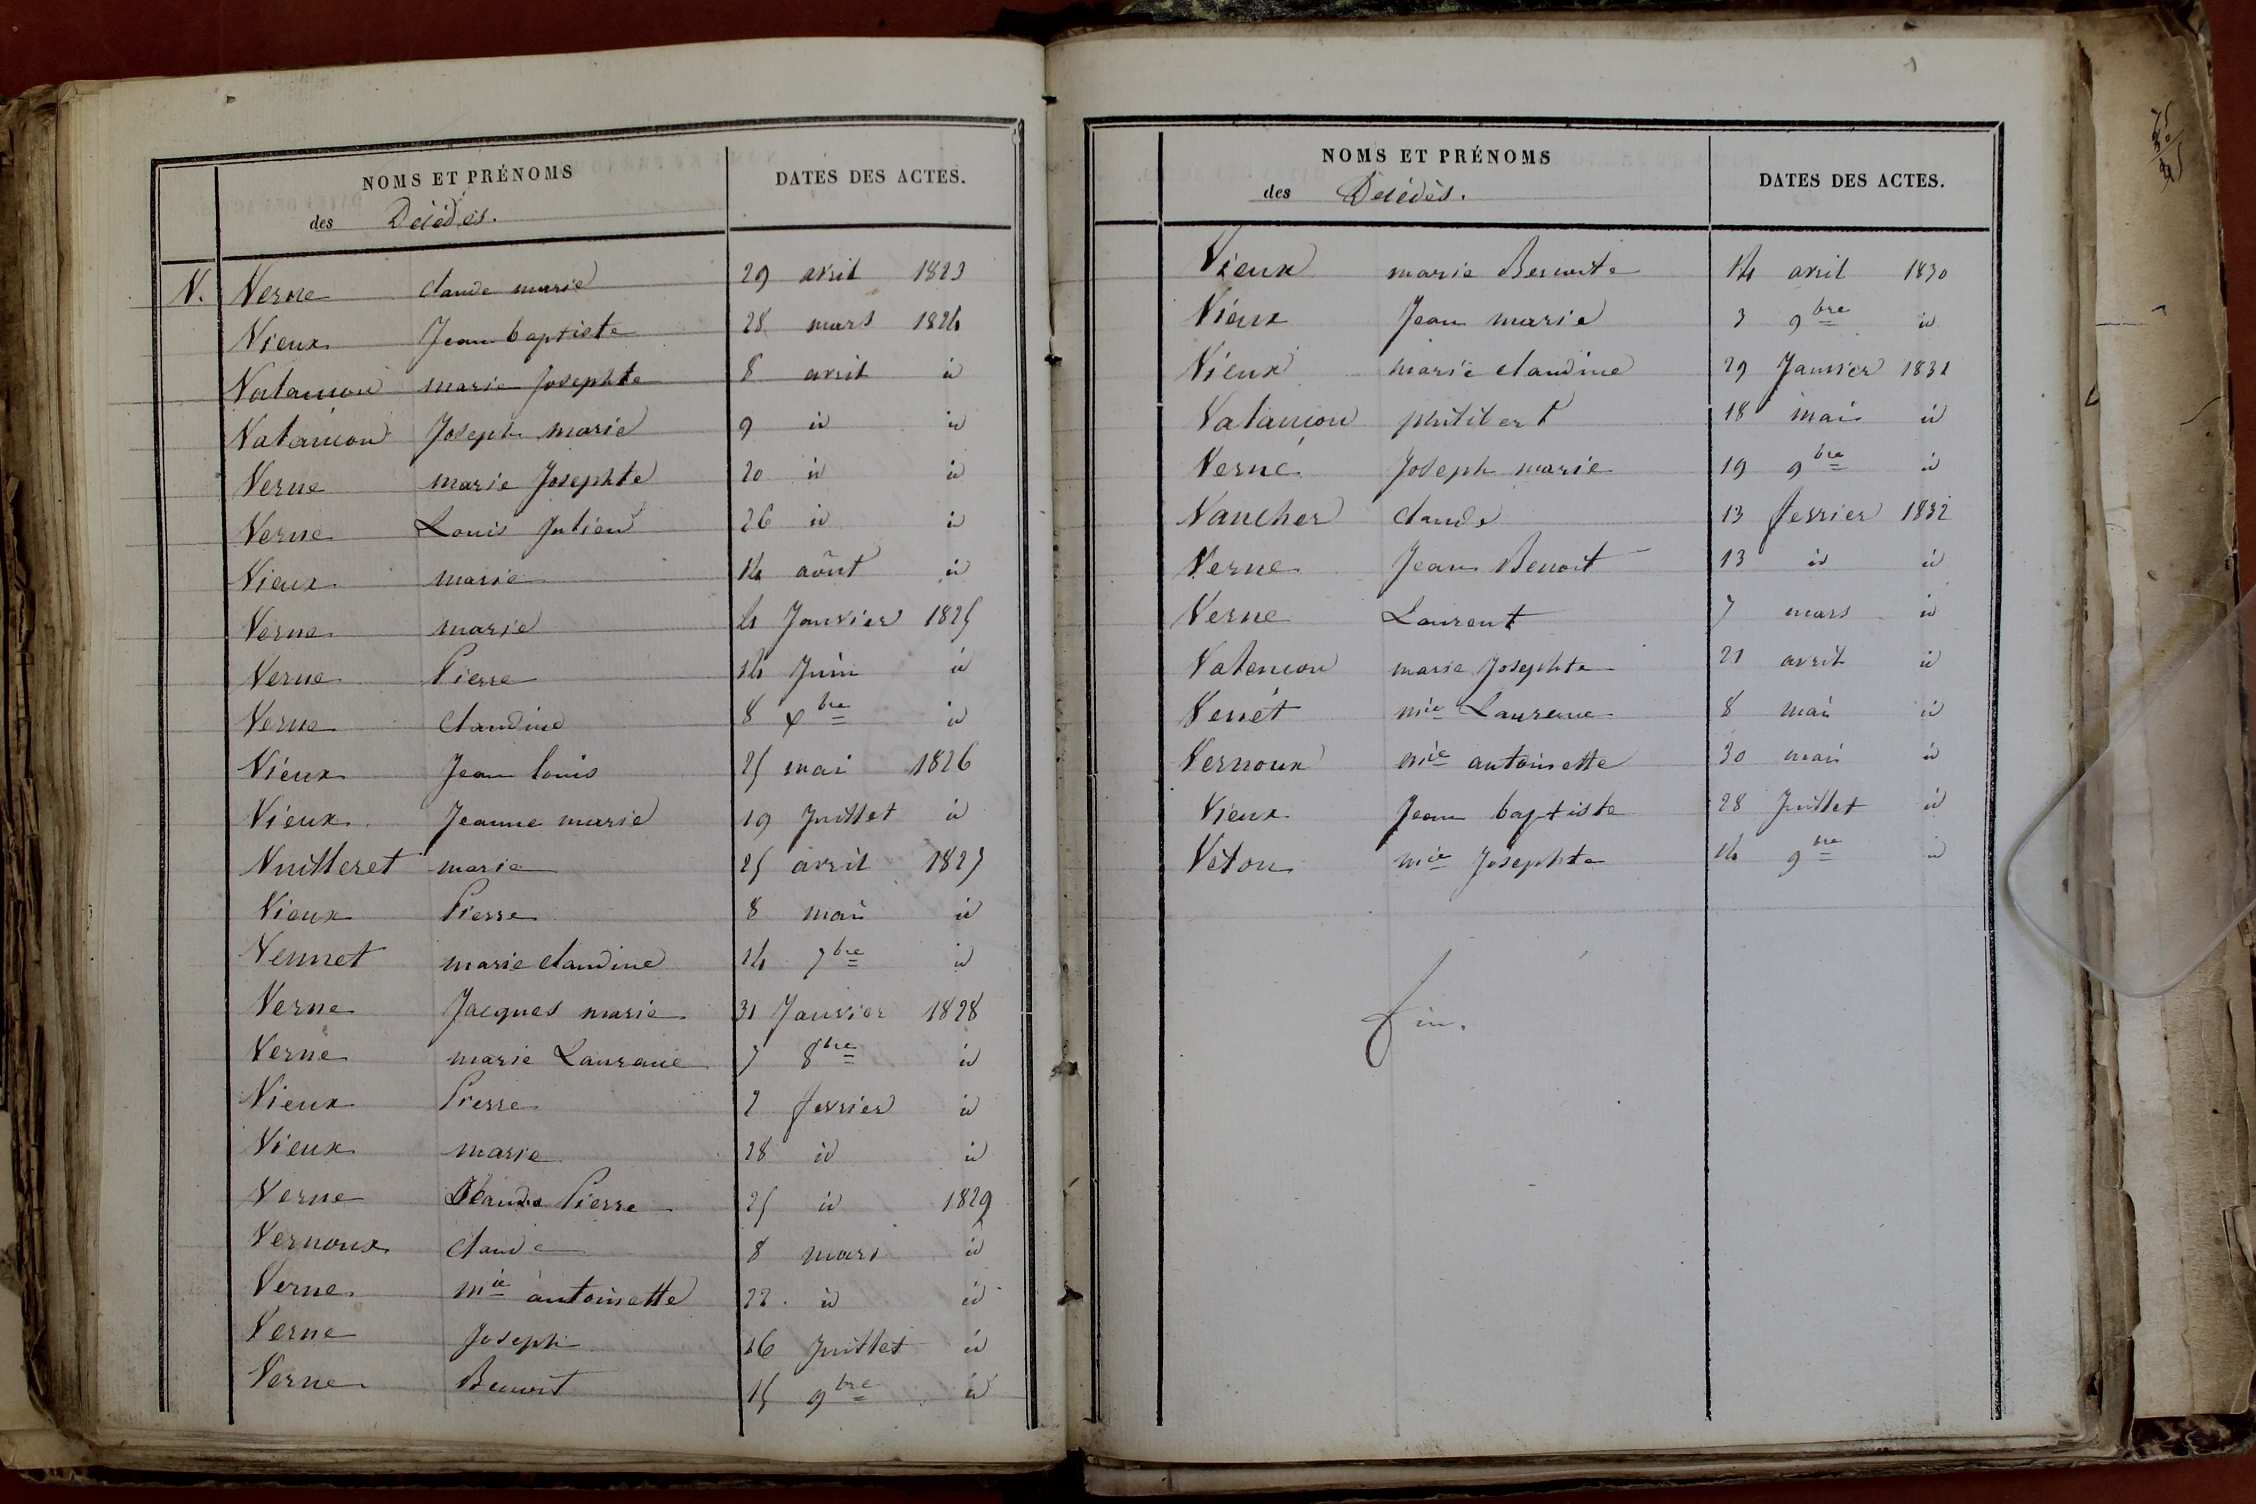 NOMS ET PRÉNOMS
des Décédés.
DATES DES ACTES.
V. Verne claude marie 29 avril 1823
Vieux Jean baptiste 28 mars 1824
Valancon marie Josephte 8 avril id
Valancon Joseph marie 9 id id
Verne marie Josephte 20 id id
Verne Louis Julien 26 id id
Vieux marie 14 août id
Verne marie 4 Janvier 1825
Verne Pierre 14 Juin id
Verne Claudine 8 xbre id
Vieux Jean louis 25 mai 1826
Vieux Jeanne marie 19 Juillet id
Vuilleret marie 25 avril 1827
Vieux Pierre 8 mai id
Vennet marie claudine 14 7bre id
Verne Jacques marie 31 Janvier 1828
Verne marie Laurence 7 8bre id
Vieux Pierre 2 fevrier id
Vieux marie 28 id id
Verne Claude Pierre 25 id 1829
Vernoux claude 8 mars id
Verne mie antoinette 22 id id
Verne Joseph 16 Juillet id
Verne Benoit 15 9bre id
NOMS ET PRÉNOMS
des Décédés.
DATES DES ACTES.
Vieux marie Benoite 14 avril 1830
Vieux Jean marie 3 9bre id
Vieux marie claudine 29 Janvier 1831
Valancon philibert 18 mai id
Verne Joseph marie 19 9bre id
Vancher claude 13 fevrier 1832
Verne Jean Benoit 13 id id
Verne Laurent 7 mars id
Valencon marie Josephte 21 avril id
Venét mie Laurence 8 mai id
Vernoux mie antoinette 30 mai id
Vieux Jean baptiste 28 Juillet id
Véton mie Josephte 14 9bre id
fin.